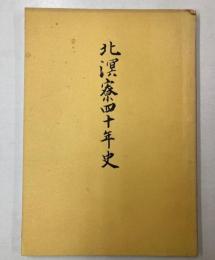 北溟寮四十年史